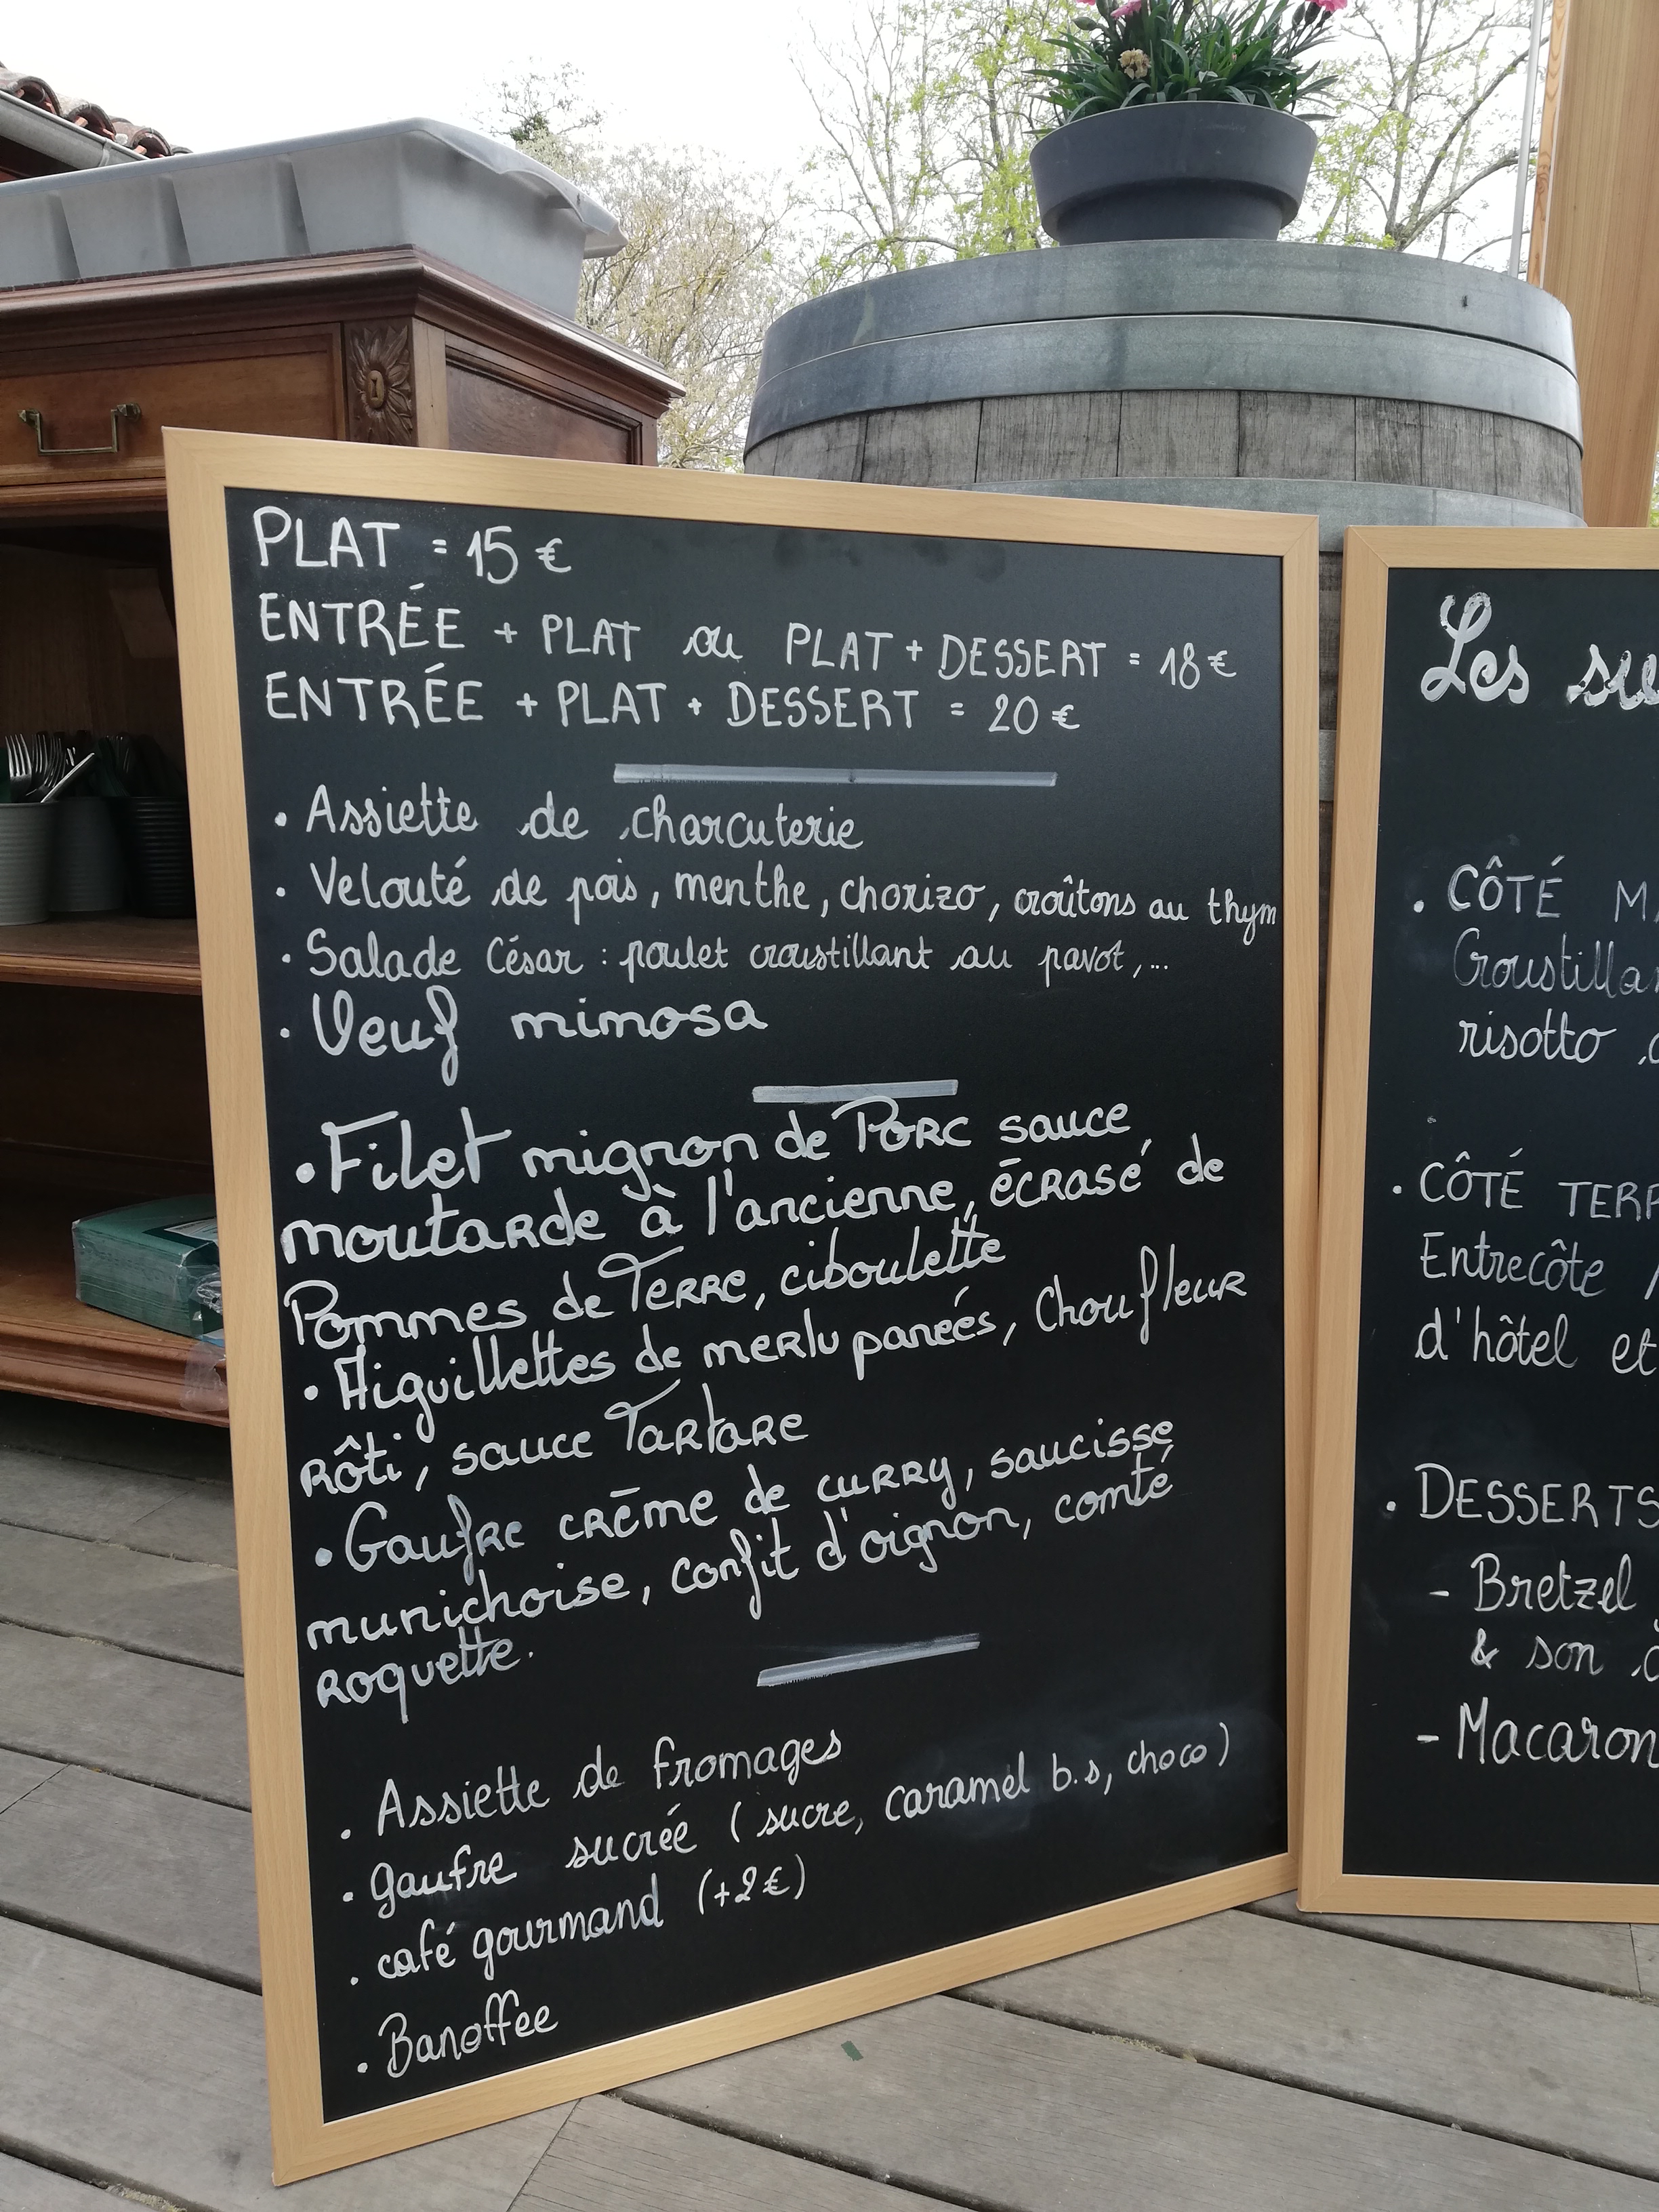 PLAT = 15 €
ENTRÉE + PLAT ou PLAT + DESSERT = 18 €
ENTRÉE + PLAT + DESSERT = 20 €
• Assiette de charcuterie
• Velouté de pois, menthe, chorizo, croûtons au thym
• Salade César : poulet croustillant au pavot, ...
• Oeuf mimosa
• Filet mignon de Porc sauce
moutarde à l'ancienne, écrasé de
Pommes de Terre, ciboulette
• Aiguillettes de merlu panées, Choufleur
rôti, sauce Tartare
• Gaufre crème de curry, saucisse
munichoise, confit d'oignon, comté,
roquette.
• Assiette de fromages
• gaufre sucrée (sucre, caramel b.s, choco)
• café gourmand (+2€)
• Banoffee
Les su
• CÔTÉ MA
Croustillan
risotto
• CÔTÉ TERR
Entrecôte /
d'hôtel et
• DESSERTS
- Bretzel
& son
- Macaron